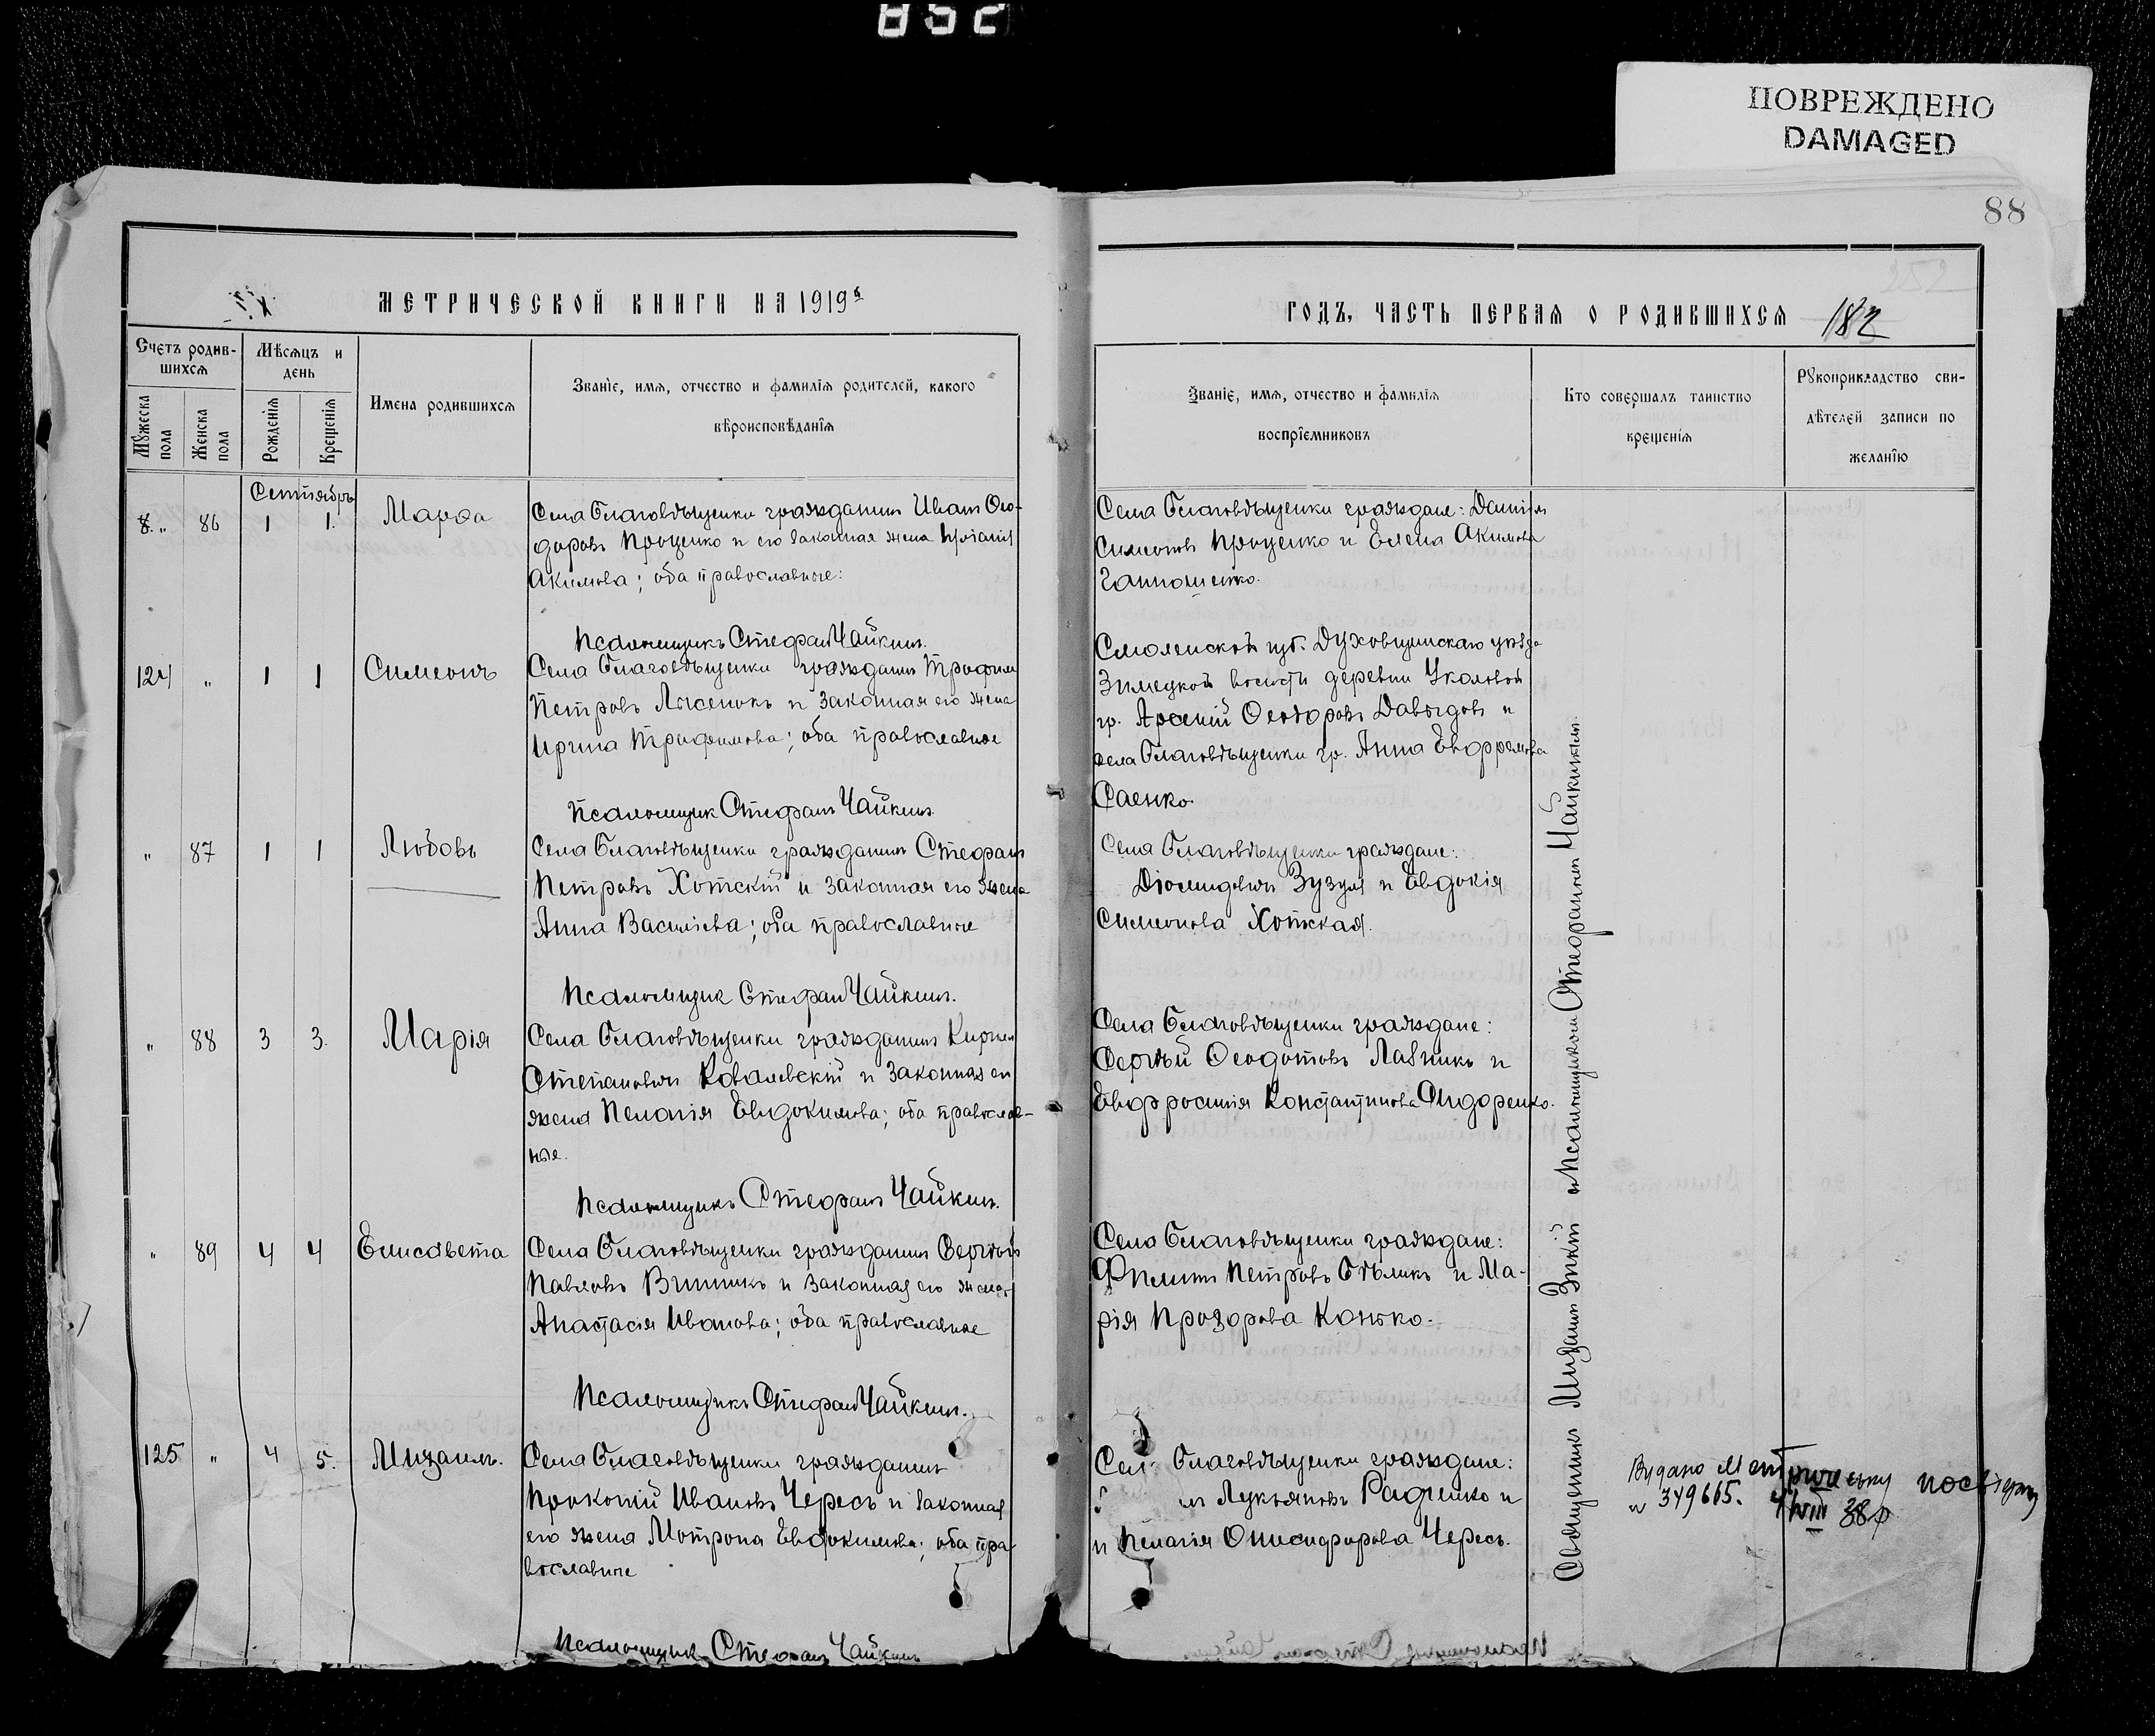 852
ПОВРЕЖДЕНО
DAMAGED
88
МЕТРИЧЕСКОЙ КНИГИ НА 1919й
ГОДЪ, ЧАСТЬ ПЕРВАЯ О РОДИВШИХСЯ 182
Счетъ родив-
шихся
Мѣсяцъ и
день
Мужеска пола
Женска пола
Рожденія
Крещенія
Имена родившихся
Званіе, имя, отчество и фамилія родителей, какого
вѣроисповѣданія
Званіе, имя, отчество и фамилія
воспріемниковъ
Кто совершалъ таинство
крещенія
Рукоприкладство сви-
дѣтелей записи по
желанію
Сентябрь
„ 86 1 1. Марѳа
Села Благовѣщенки гражданинъ Иванъ Ѳео-
доровъ Проценко и его законная жена
Акимова; оба православные:
Псаломщикъ Стефанъ Чайкинъ.
Села Благовѣщенки граждане: Даніилъ
Симеоновъ Проценко и Елена Акимова
Ганношенко.
124 „ 1 1 Симеонъ
Села Благовѣщенки гражданинъ Трофимъ
Петровъ Лысенокъ и законная его жена
Ирина Трофимова; оба православные
Псаломщикъ Стефанъ Чайкинъ.
Смоленской губ. Духовщинскаго уѣзда
волости деревни
гр. Арсеній Ѳеодоровъ Давыдовъ и
села Благовѣщенки гр. Анна Евфремова
Саенко.
„ 87 1 1 Любовь
Села Благовѣщенки гражданинъ Стефанъ
Петровъ Хотскій и законная его жена
Анна Василіева; оба православные
Псаломщикъ Стефанъ Чайкинъ.
Села Благовѣщенки граждане:
Зузуля и Евдокія
Симеонова Хотская.
„ 88 3 3. Марія
Села Благовѣщенки гражданинъ Кириллъ
Степановичъ Ковалевскій и законная его
жена Пелагія Евдокимова; оба православ-
ные.
Псаломщикъ Стефанъ Чайкинъ.
Села Благовѣщенки граждане:
Сергѣй Ѳеодотовъ Лавникъ и
Евфросинія Константинова Сидоренко.
„ 89 4 4 Елисавета
Села Благовѣщенки гражданинъ Сергѣй
Павловъ Винникъ и законная его жена
Анастасія Иванова; оба православные
Псаломщикъ Стефанъ Чайкинъ.
Села Благовѣщенки граждане:
Филиппъ Петровъ Бѣликъ и Ма-
рія Прозорова Конько.
125 „ 4 5. Михаилъ.
Села Благовѣщенки гражданинъ
Прокопій Ивановъ Чересъ и законная
его жена Мотрона Евдокимова; оба пра-
вославные
Псаломщикъ Стефанъ Чайкинъ
Сел Благовѣщенки граждане:
Лукьяновъ Радченко и
и Пелагія Онисифорова Чересъ.
Священникъ Михаилъ Зикій и Псаломщикомъ Стефаномъ Чайкинымъ.
Видано метричну
№ 349665. 4/VIII 38р